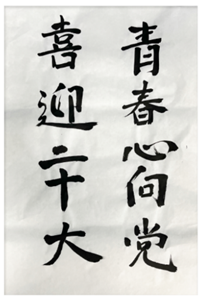 青春心向党
喜迎二十大